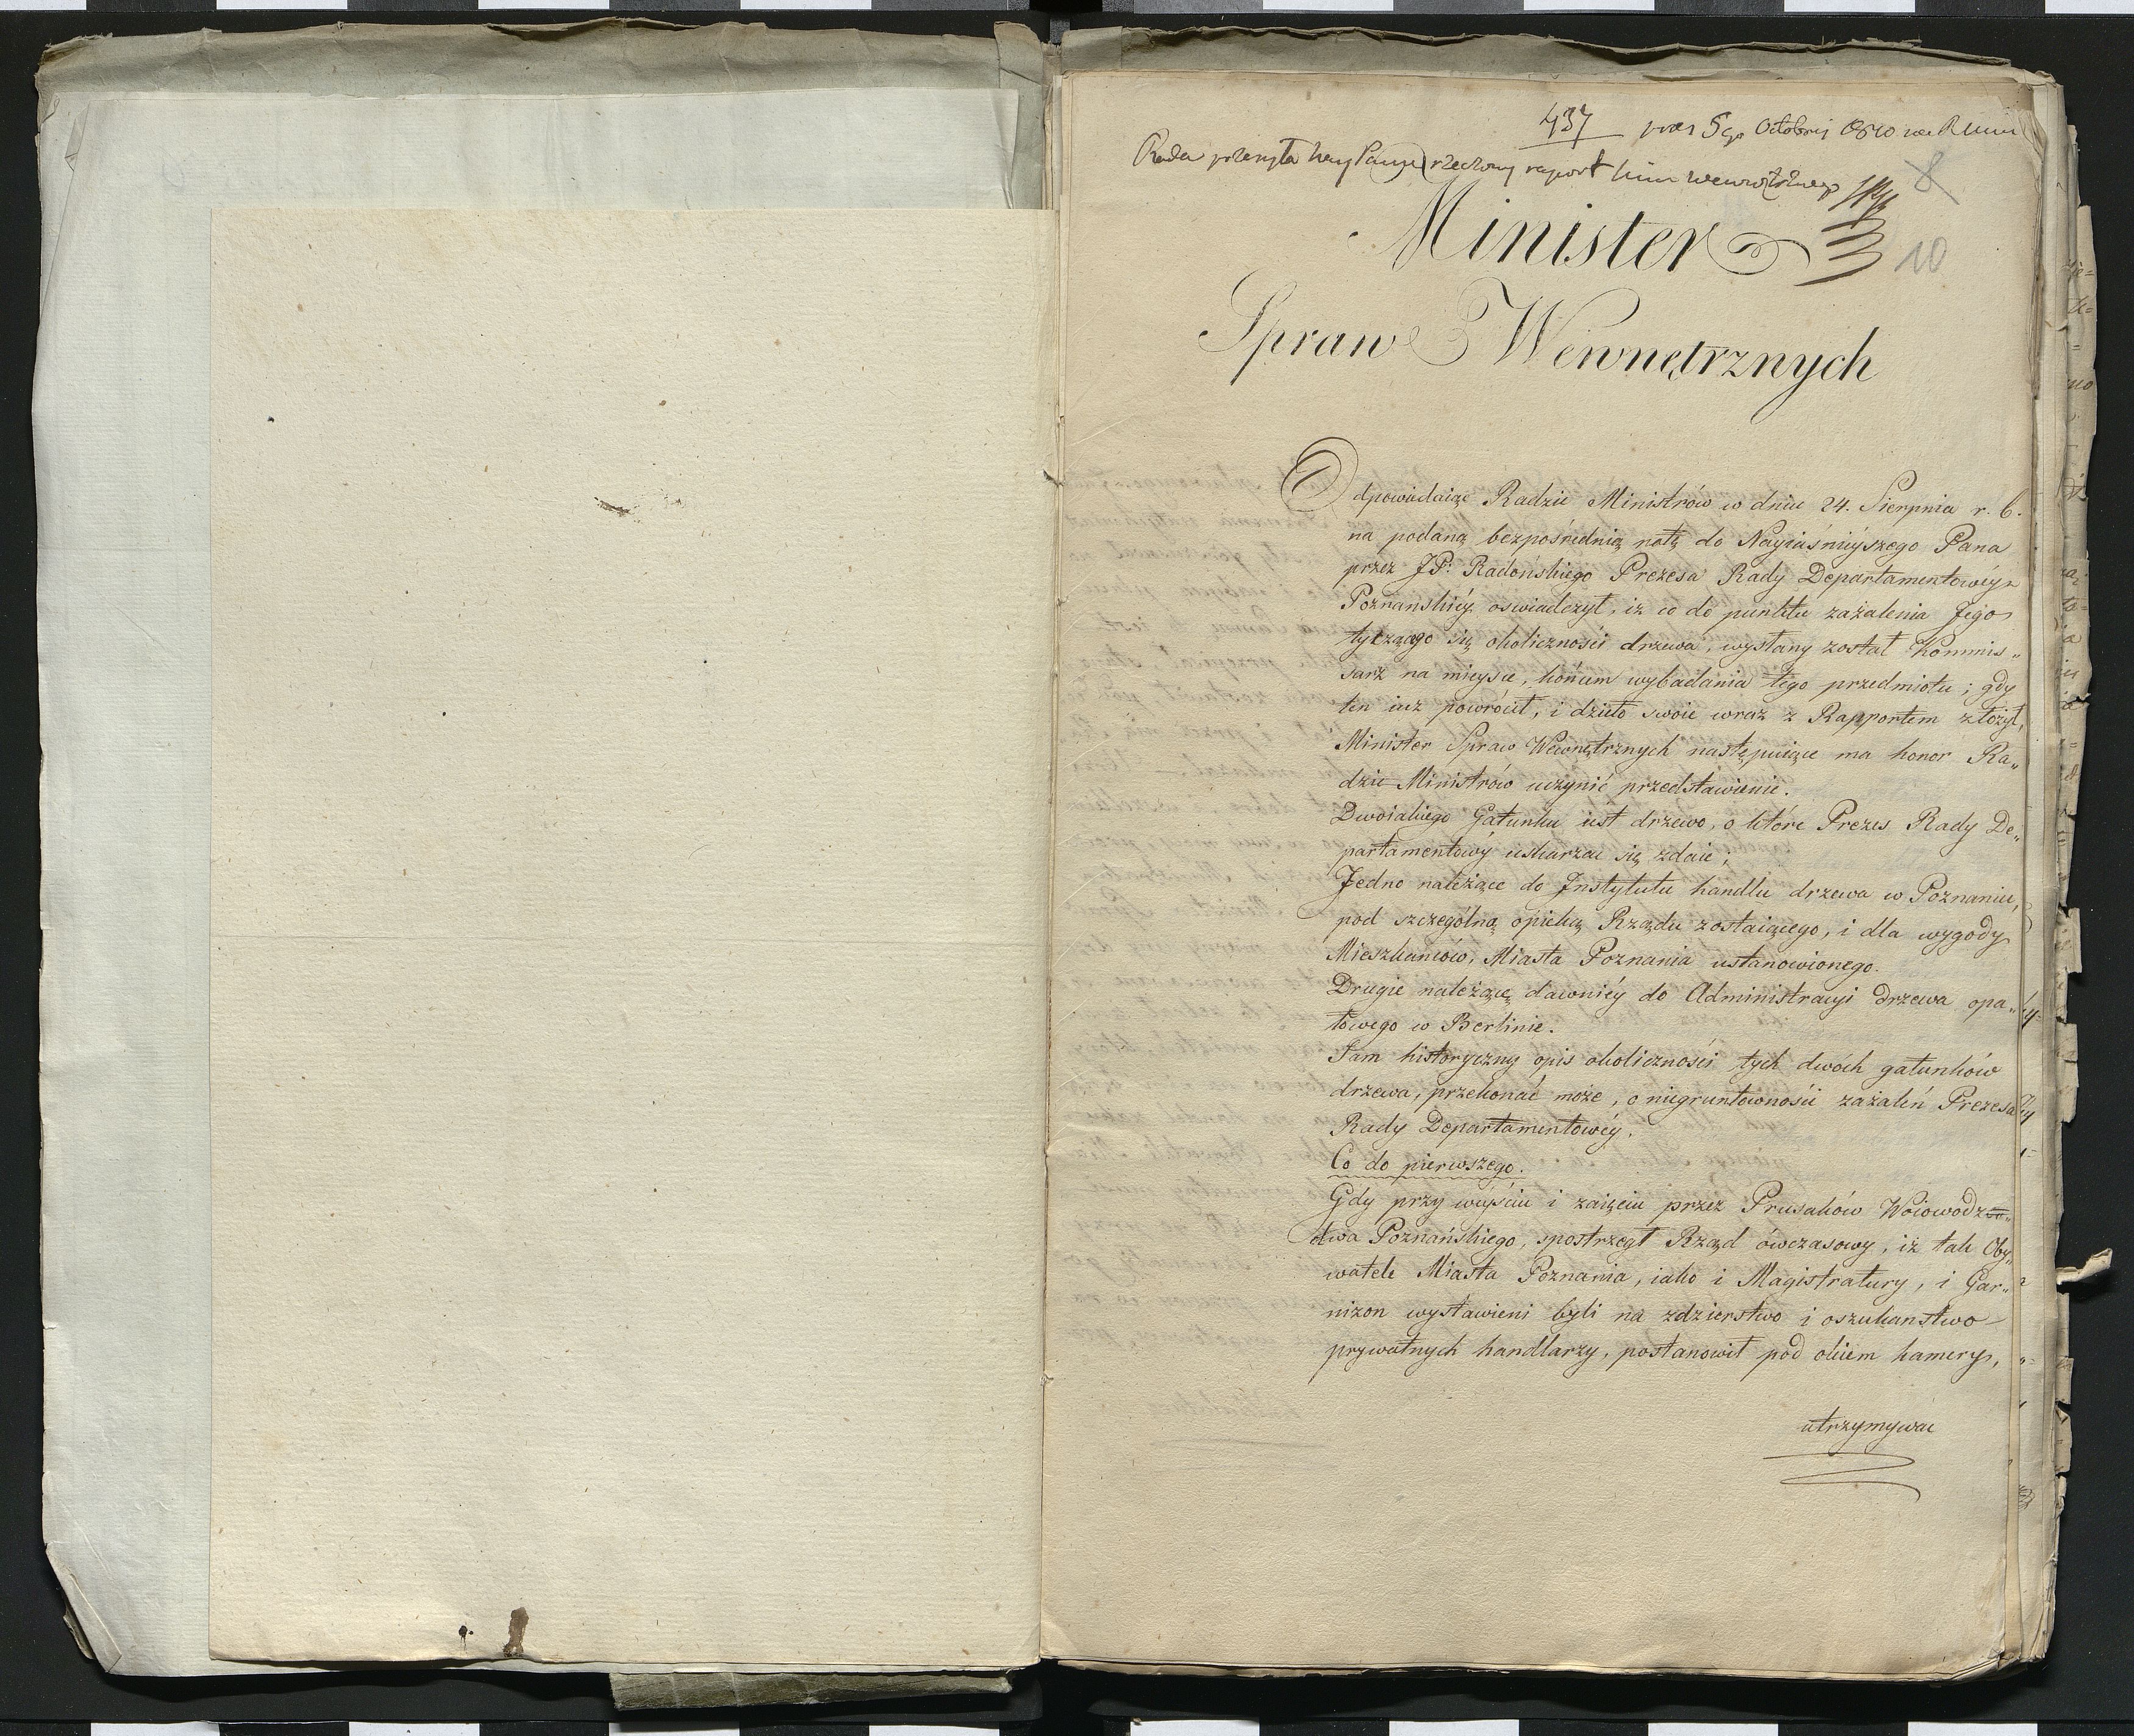 437 5go Octobris 1810
Rada przesyła Nay Panu rzeczony raport Min Wewnętrznego
8
10
Minister
Spraw Wewnętrznych
Odpowiadaiąc Radzie Ministrów w dniu 24. Sierpnia r. b.
na podaną bezpośrednią notę do Nayiaśnieyszego Pana
przez JP: Radońskiego Prezesa Rady Departamentowéy
Poznańskiéy oswiadczył, iż co do punktu zażalenia Jego
tyczącego się okoliczności drzewa, wysłany został Kommis„
sarz na mieysce, końcem wybadania tego przedmiotu; gdy
ten iuż powrócił, i dzieło swoie wraz z Rapportem złożył,
Minister Spraw Wewnętrznych następuiące ma honor Ra„
dzie Ministrów uczynić przedstawienie.
Dwoiakiego Gatunku iest drzewo, o które Prezes Rady De„
partamentowéy uskarzac się zdaie;
Jedno należące do Instytutu handlu drzewa w Poznaniu,
pod szczególną opieką Rządu zostaiącego, i dla wygody
Mieszkańców, Miasta Poznania ustanowionego.
Drugie należące dawniéy do Administracyi drzewa opa„
łowego w Berlinie.
Sam historyczny opis okoliczności tych dwóch gatunków
drzewa, przekonać może, o niegruntowności zażaleń Prezesa
Rady Departamentowéy.
Co do pierwszego.
Gdy przy weyściu i zaięciu przez Prusaków Woiowodz„
twa Poznańskiego, spostrzegł Rząd ówczasowy, iż tak Oby„
watele Miasta Poznania, iako i Magistratury, i Gar„
nizon wystawieni byli na zdzierstwo i oszukanstwo
prywatnych handlarzy, postanowił pod okiem kamery,
utrzymywac